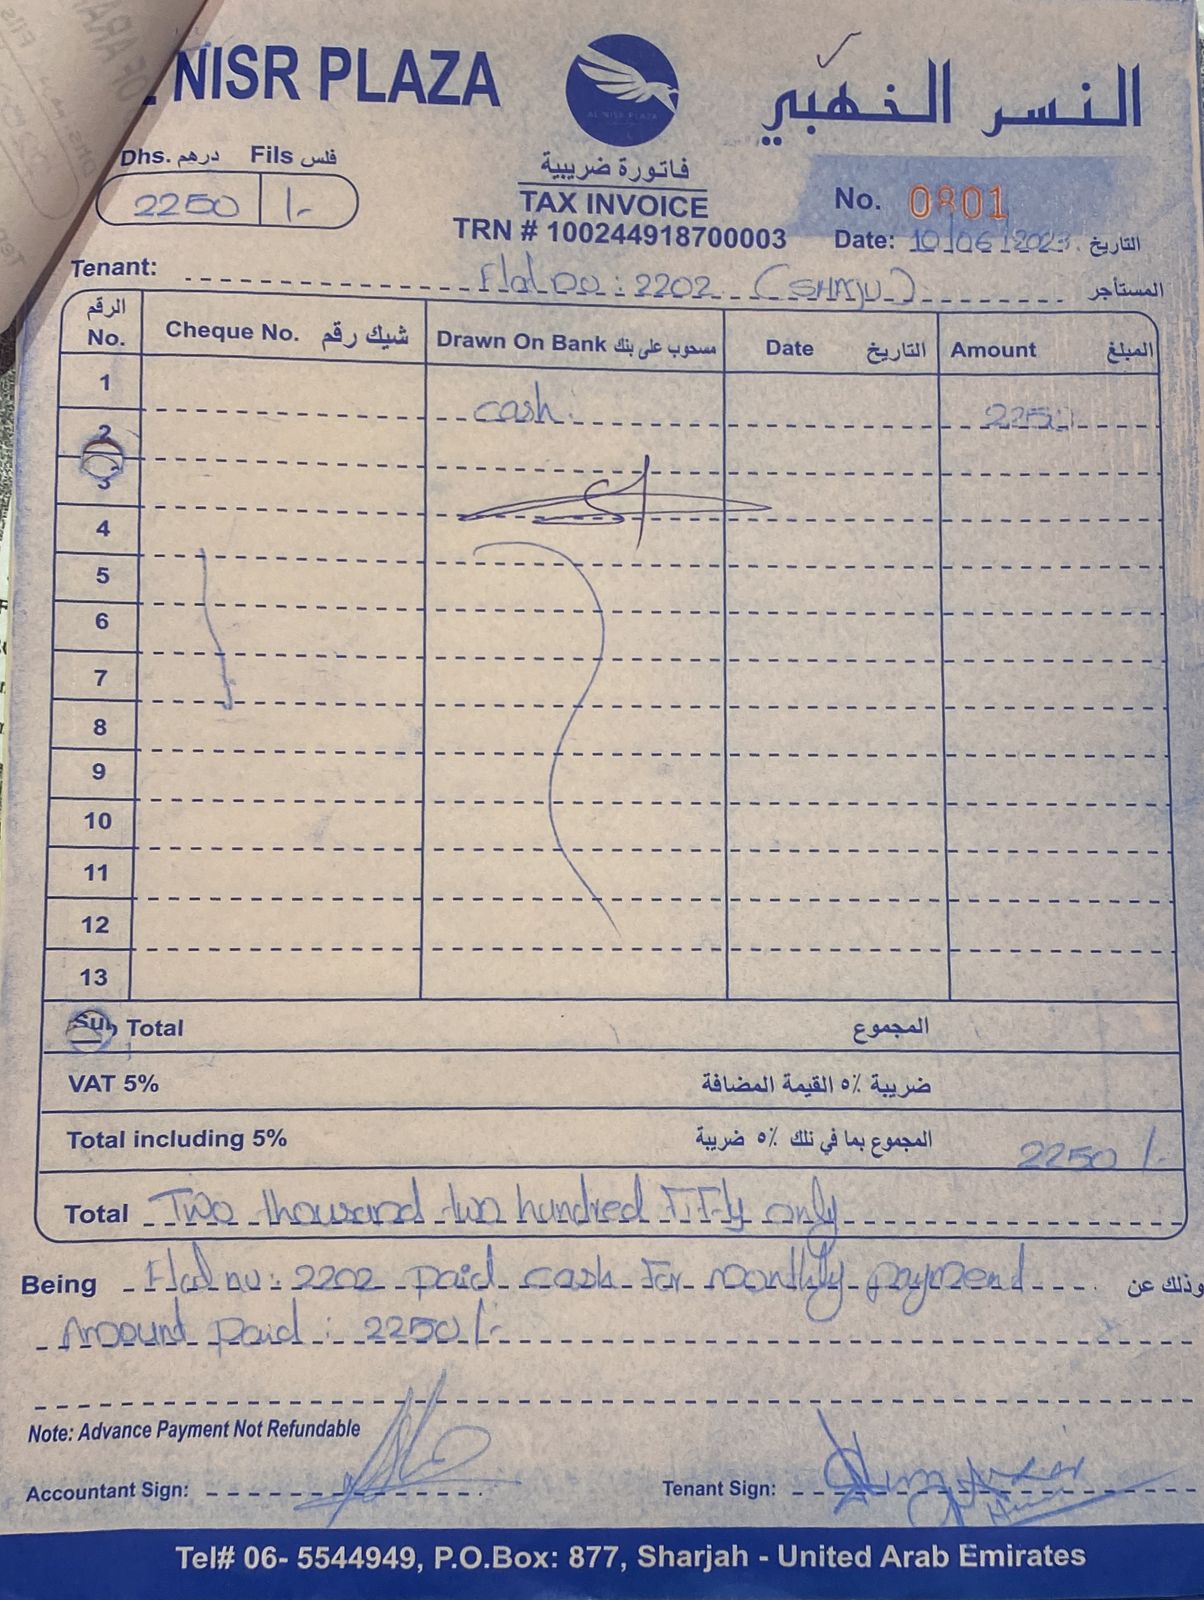 NISR PLAZA
النسر الذهبي
AL NISR PLAZA
Dhs. درهم Fils فلس
2250 /-
فاتورة ضريبية
TAX INVOICE
TRN # 100244918700003
No. 0801
Date: 10/06/2023 التاريخ
Tenant: Flat no: 2202 المستأجر
الرقم No. Cheque No. شيك رقم Drawn On Bank مسحوب على بنك Date التاريخ Amount المبلغ
1 cash. 2250
2
3
4
5
6
7
8
9
10
11
12
13
Sub Total المجموع
VAT 5% ضريبة ٥٪ القيمة المضافة
Total including 5% المجموع بما في ذلك ٥٪ ضريبة 2250 /-
Total Two thousand two hundred Fifty only
Being Flat no: 2202 paid cash for monthly payment وذلك عن
Amount paid: 2250/-
Note: Advance Payment Not Refundable
Accountant Sign: Tenant Sign:
Tel# 06- 5544949, P.O.Box: 877, Sharjah - United Arab Emirates